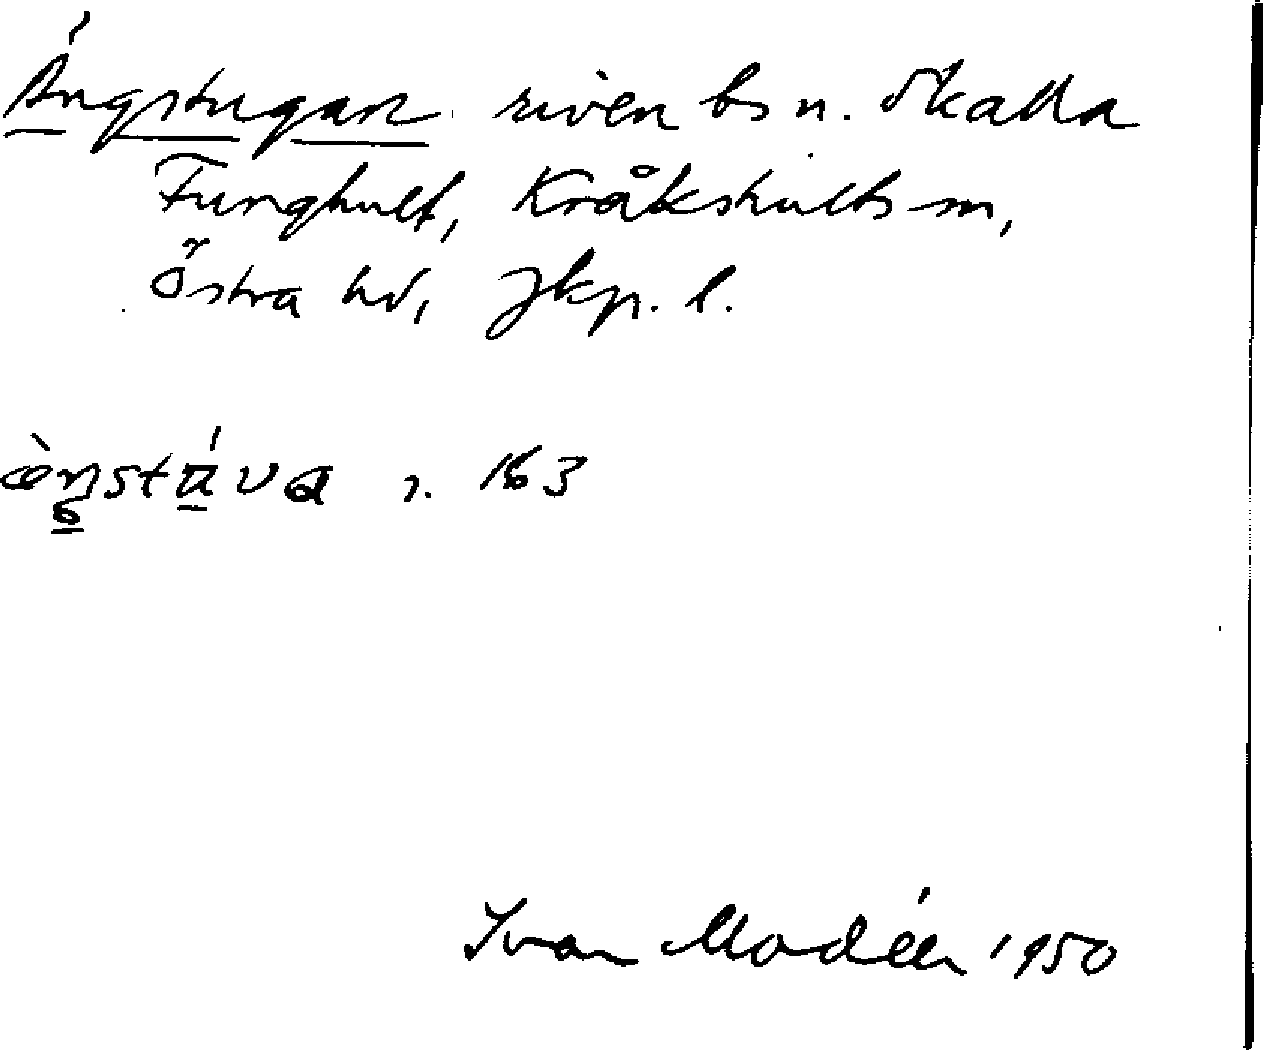 Ängstugan riven bs n. Skalla
Funghult, Kråkshults sn,
Östra hd, Jkp. l.
æ̀ŋstú̱va r. 163
Ivar Modéer 1950